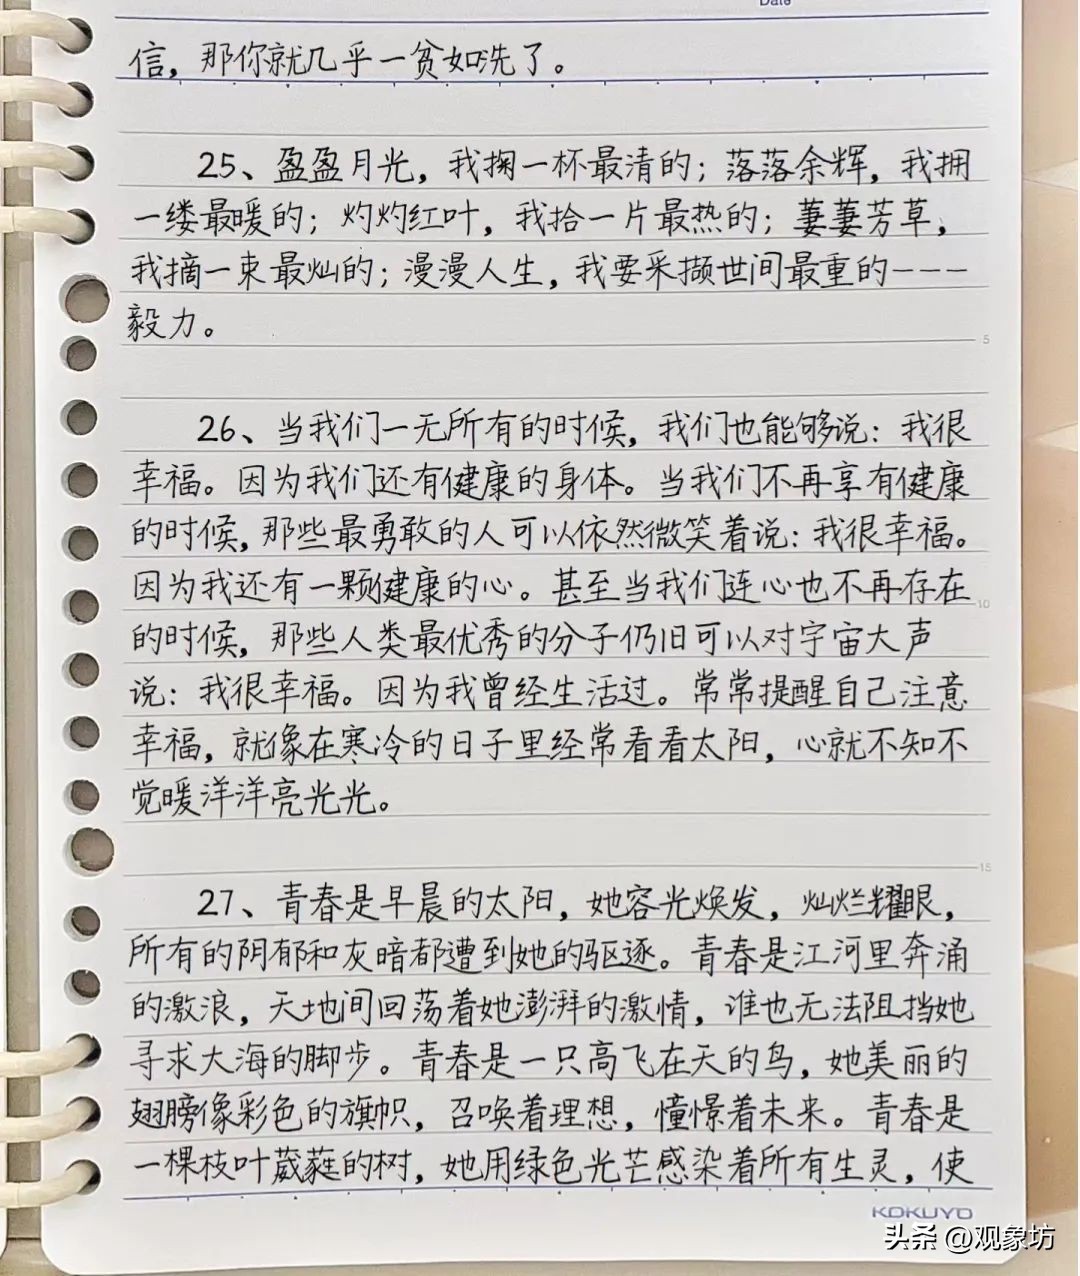 Date
信，那你就几乎一贫如洗了。
25、盈盈月光，我掬一杯最清的；落落余辉，我拥
一缕最暖的；灼灼红叶，我拾一片最热的；萋萋芳草，
我摘一束最灿的；漫漫人生，我要采撷世间最重的----
毅力。
5
26、当我们一无所有的时候，我们也能够说：我很
幸福。因为我们还有健康的身体。当我们不再享有健康
的时候，那些最勇敢的人可以依然微笑着说：我很幸福。
因为我还有一颗健康的心。甚至当我们连心也不再存在
10
的时候，那些人类最优秀的分子仍旧可以对宇宙大声
说：我很幸福。因为我曾经生活过。常常提醒自己注意
幸福，就像在寒冷的日子里经常看看太阳，心就不知不
觉暖洋洋亮光光。
15
27、青春是早晨的太阳，她容光焕发，灿烂耀眼，
所有的阴郁和灰暗都遭到她的驱逐。青春是江河里奔涌
的激浪，天地间回荡着她澎湃的激情，谁也无法阻挡她
寻求大海的脚步。青春是一只高飞在天的鸟，她美丽的
翅膀像彩色的旗帜，召唤着理想，憧憬着未来。青春是
一棵枝叶葳蕤的树，她用绿色光芒感染着所有生灵，使
KOKUYO
头条 @观象坊